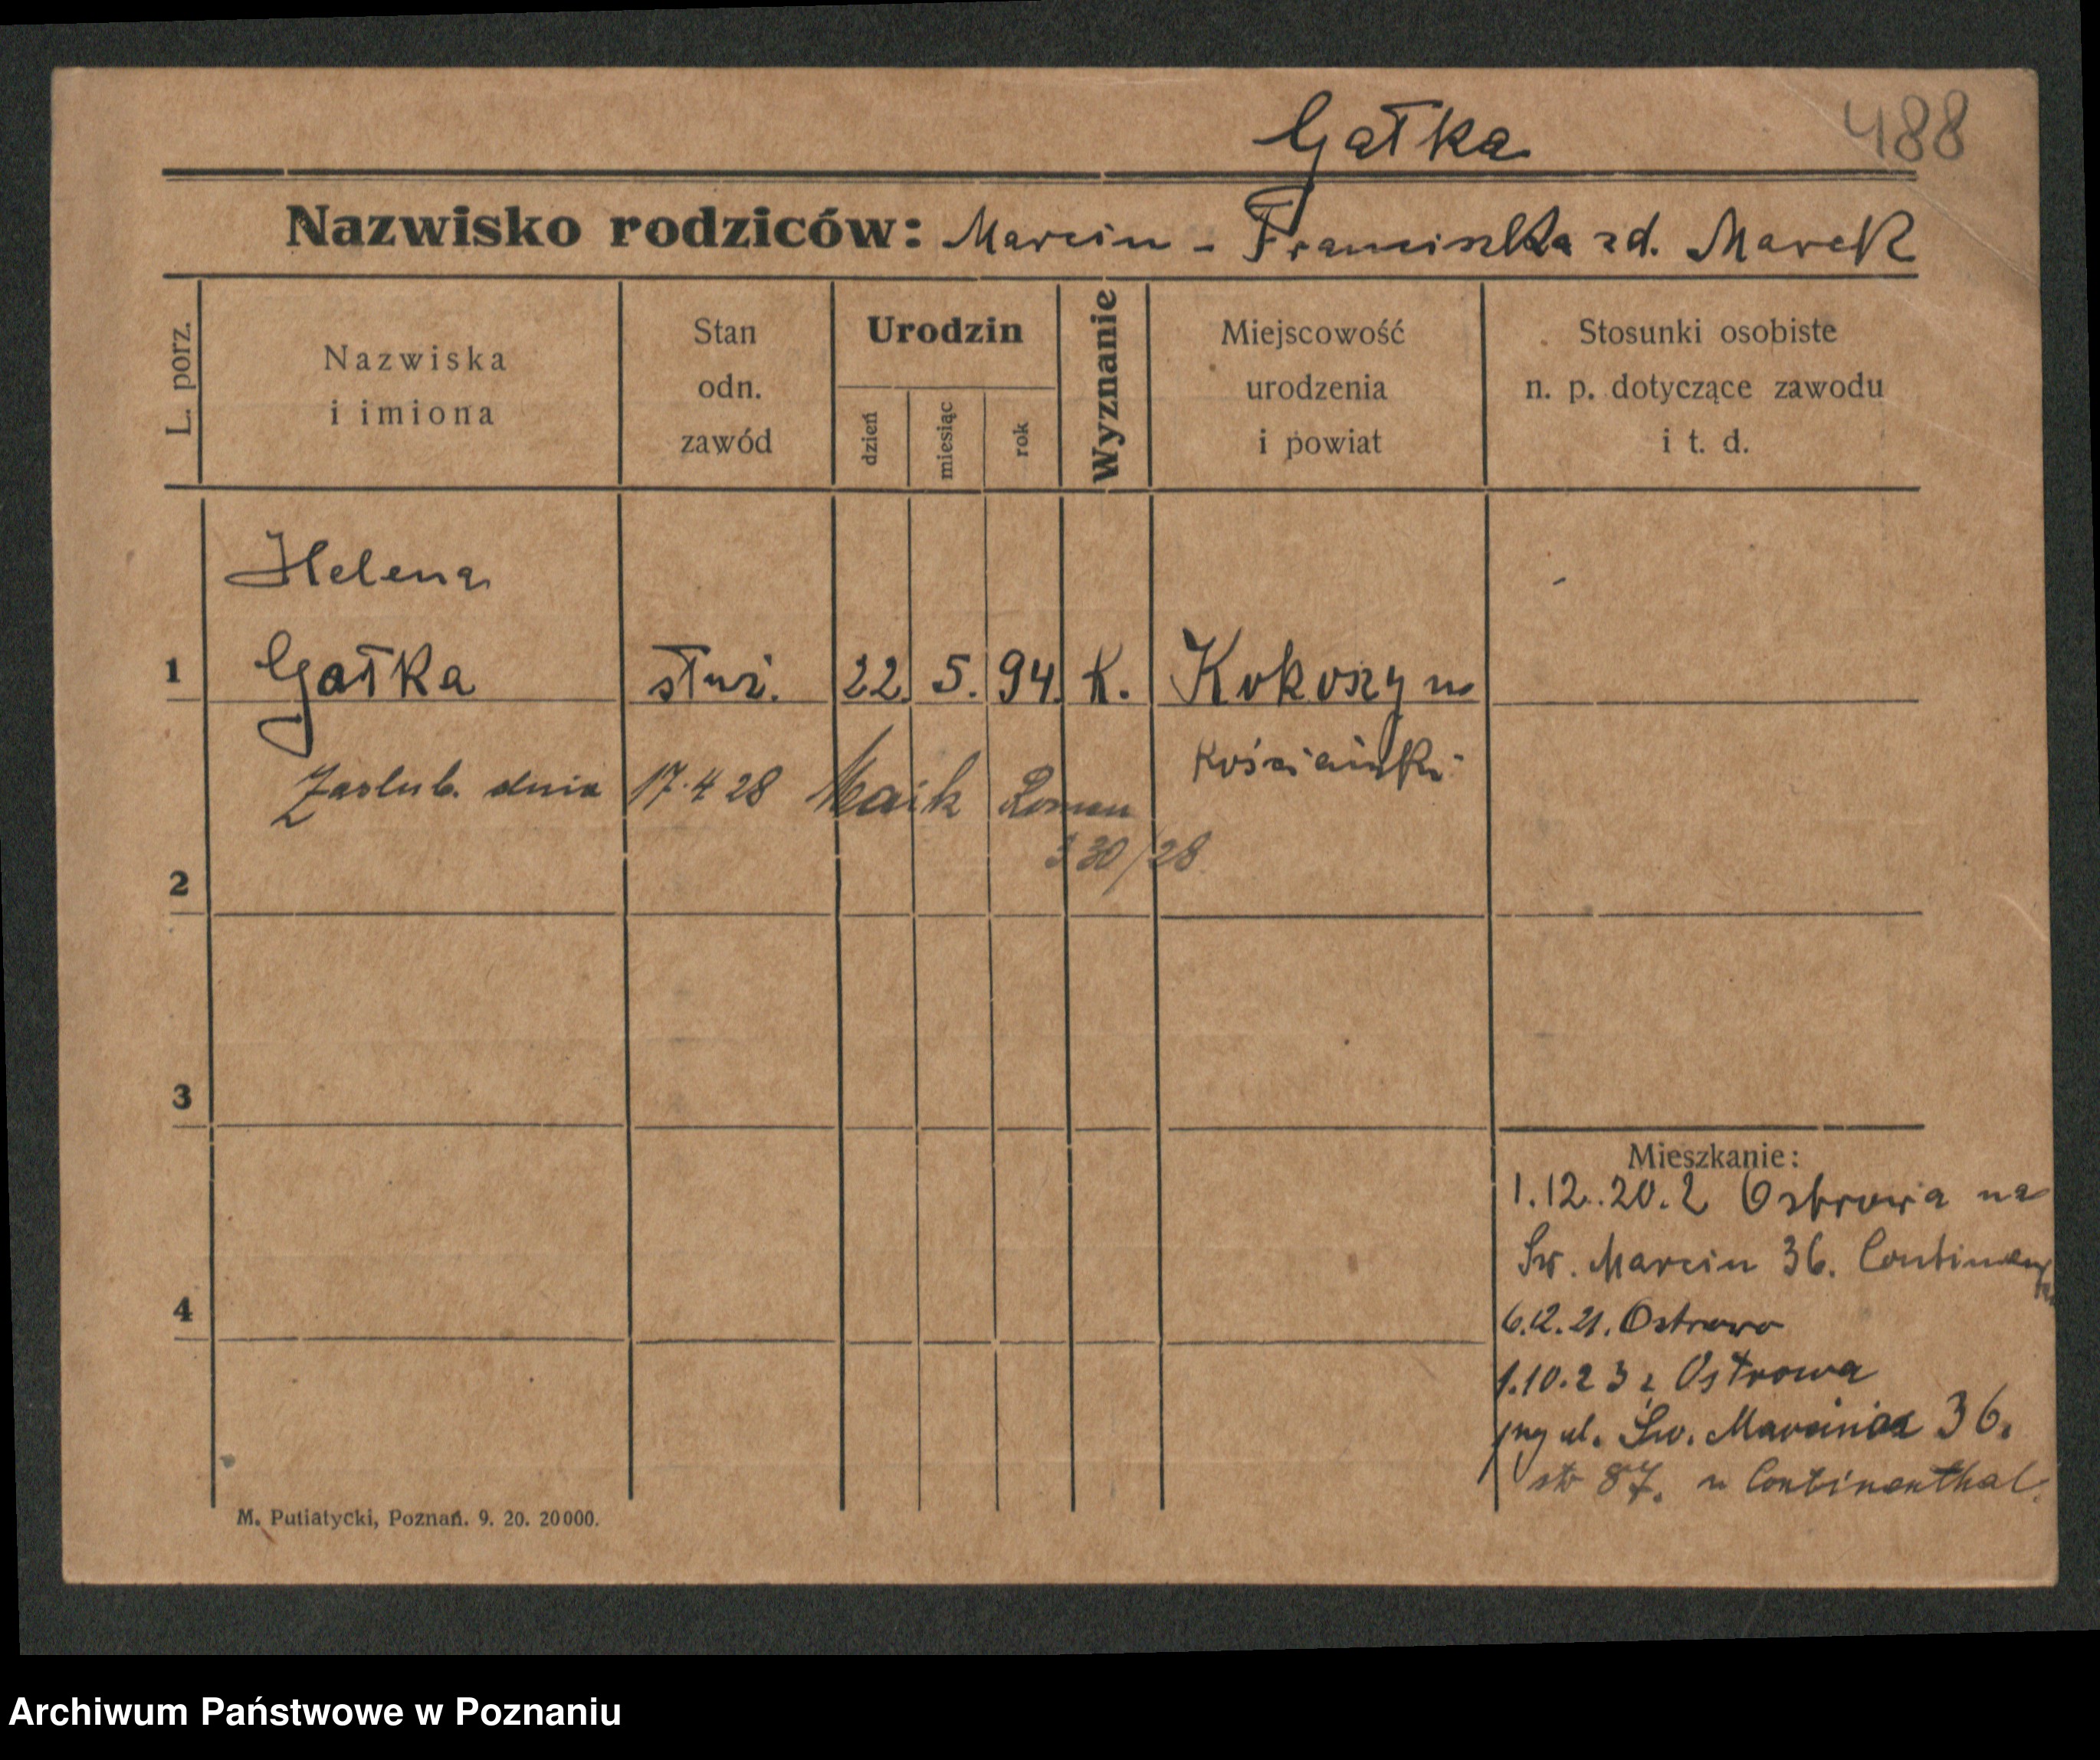 Gałka 488
Nazwisko rodziców: Marcin - Franciszka zd. Marek
L. porz.
Nazwiska
i imiona
Stan
odn.
zawód
Urodzin
dzień
miesiąc
rok
Wyznanie
Miejscowość
urodzenia
i powiat
Stosunki osobiste
n. p. dotyczące zawodu
i t. d.
Helena
1 Gałka służ. 22. 5. 94. K. Kokoszyn
kościański
Zaślub. dnia 17.4 28 Maik Roman
330/28
2
3
4
Mieszkanie:
1.12.20. z Ostrowa na
Św. Marcin 36.
6.12.21. Ostrowo
1.10.23 z Ostrowa
ul. Św. Marcina 36.
87. Continenthal.
M. Putiatycki, Poznań. 9. 20. 20000.
Archiwum Państwowe w Poznaniu